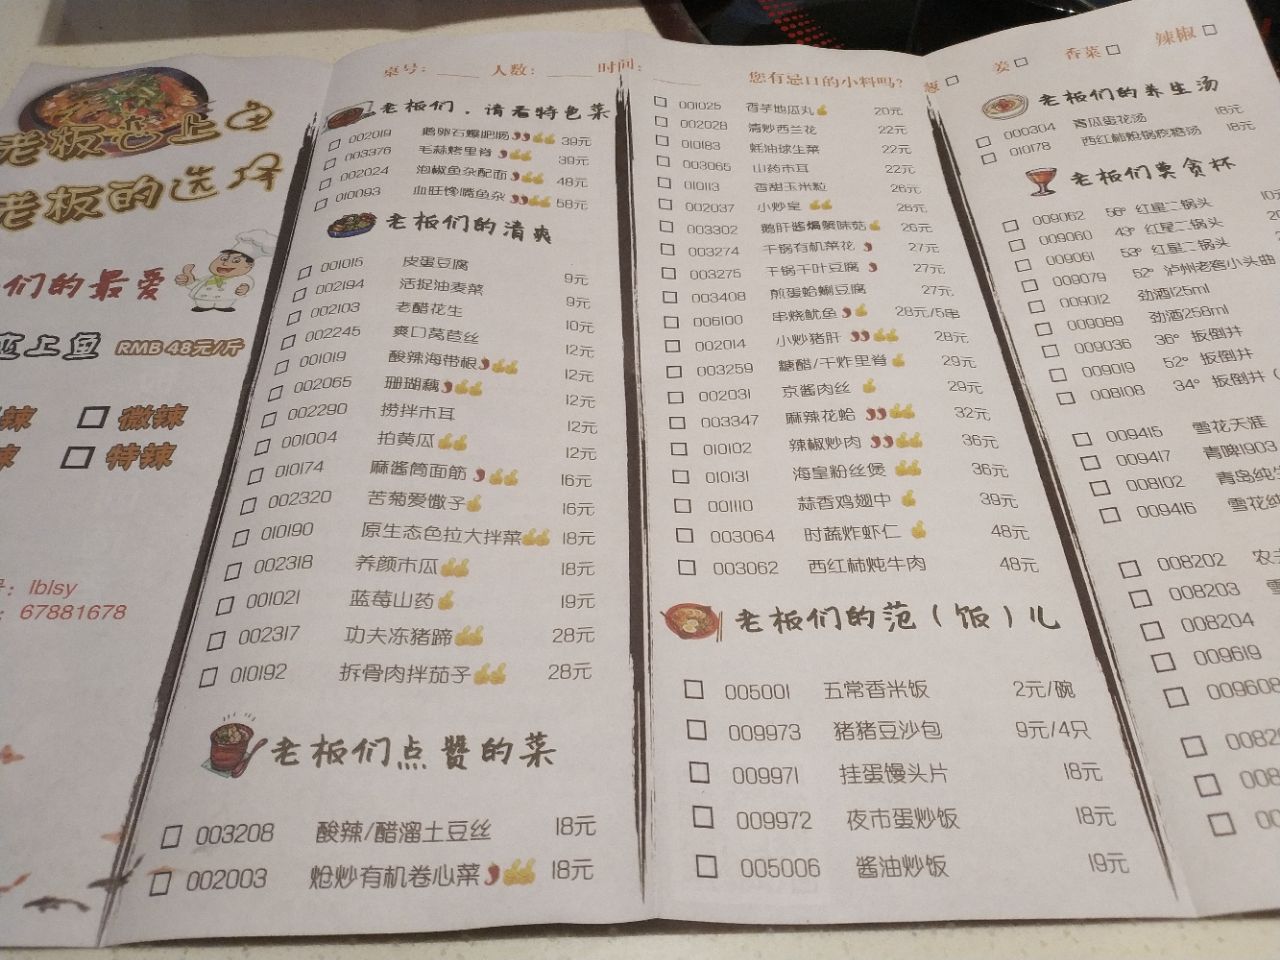 桌号: 人数: 时间: 您有忌口的小料吗? 葱 姜 香菜 辣椒
老板的选择
们的最爱
上鱼 RMB 48元/斤
辣 微辣
辣 特辣
: lblsy
: 67881678
老板们,请看特色菜
002019 鹅卵石爆肥肠 39元
003376 毛蒜烤里脊 39元
002024 泡椒鱼杂配面 48元
010093 血旺馋嘴鱼杂 58元
老板们的清爽
001015 皮蛋豆腐 9元
002194 活捉油麦菜 9元
002103 老醋花生 10元
002245 爽口莴苣丝 12元
001019 酸辣海带根 12元
002065 珊瑚藕 12元
002290 捞拌木耳 12元
001004 拍黄瓜 12元
010174 麻酱筒面筋 16元
002320 苦菊爱馓子 16元
010190 原生态色拉大拌菜 18元
002318 养颜木瓜 18元
001021 蓝莓山药 19元
002317 功夫冻猪蹄 28元
010192 拆骨肉拌茄子 28元
老板们点赞的菜
003208 酸辣/醋溜土豆丝 18元
002003 炝炒有机卷心菜 18元
001025 香芋地瓜丸 20元
002028 清炒西兰花 22元
010183 蚝油球生菜 22元
003065 山药木耳 22元
010113 香甜玉米粒 26元
002037 小炒皇 26元
003302 鹅肝酱焗蟹味菇 26元
003274 干锅有机菜花 27元
003275 干锅千叶豆腐 27元
003408 煎蛋蛤蜊豆腐 27元
006100 串烧鱿鱼 28元/5串
002014 小炒猪肝 28元
003259 糖醋/干炸里脊 29元
002031 京酱肉丝 29元
003347 麻辣花蛤 32元
010102 辣椒炒肉 36元
010131 海皇粉丝煲 36元
001110 蒜香鸡翅中 39元
003064 时蔬炸虾仁 48元
003062 西红柿炖牛肉 48元
老板们的范(饭)儿
005001 五常香米饭 2元/碗
009973 猪猪豆沙包 9元/4只
009971 挂蛋馒头片 18元
009972 夜市蛋炒饭 18元
005006 酱油炒饭 19元
老板们的养生汤
000304 黄瓜蛋花汤 18元
010178 西红柿粉锅疙瘩汤 18元
老板们莫贪杯
009062 56° 红星二锅头
009060 43° 红星二锅头
009061 53° 红星二锅头
009079 52° 泸州老窖小头曲
009012 劲酒125ml
009089 劲酒258ml
009036 36° 扳倒井
009019 52° 扳倒井
008108 34° 扳倒井
009415 雪花天涯
009417 青啤1903
008102 青岛纯生
009416 雪花纯
008202 农夫
008203
008204
009619
009608